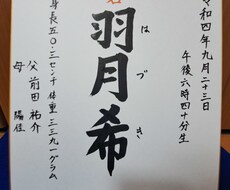 令和四年九月二十三日
午後六時四十分生
名
羽月希
はづき
身長五〇・三センチ 体重三三九一グラム
父 前田祐介
母 陽佳